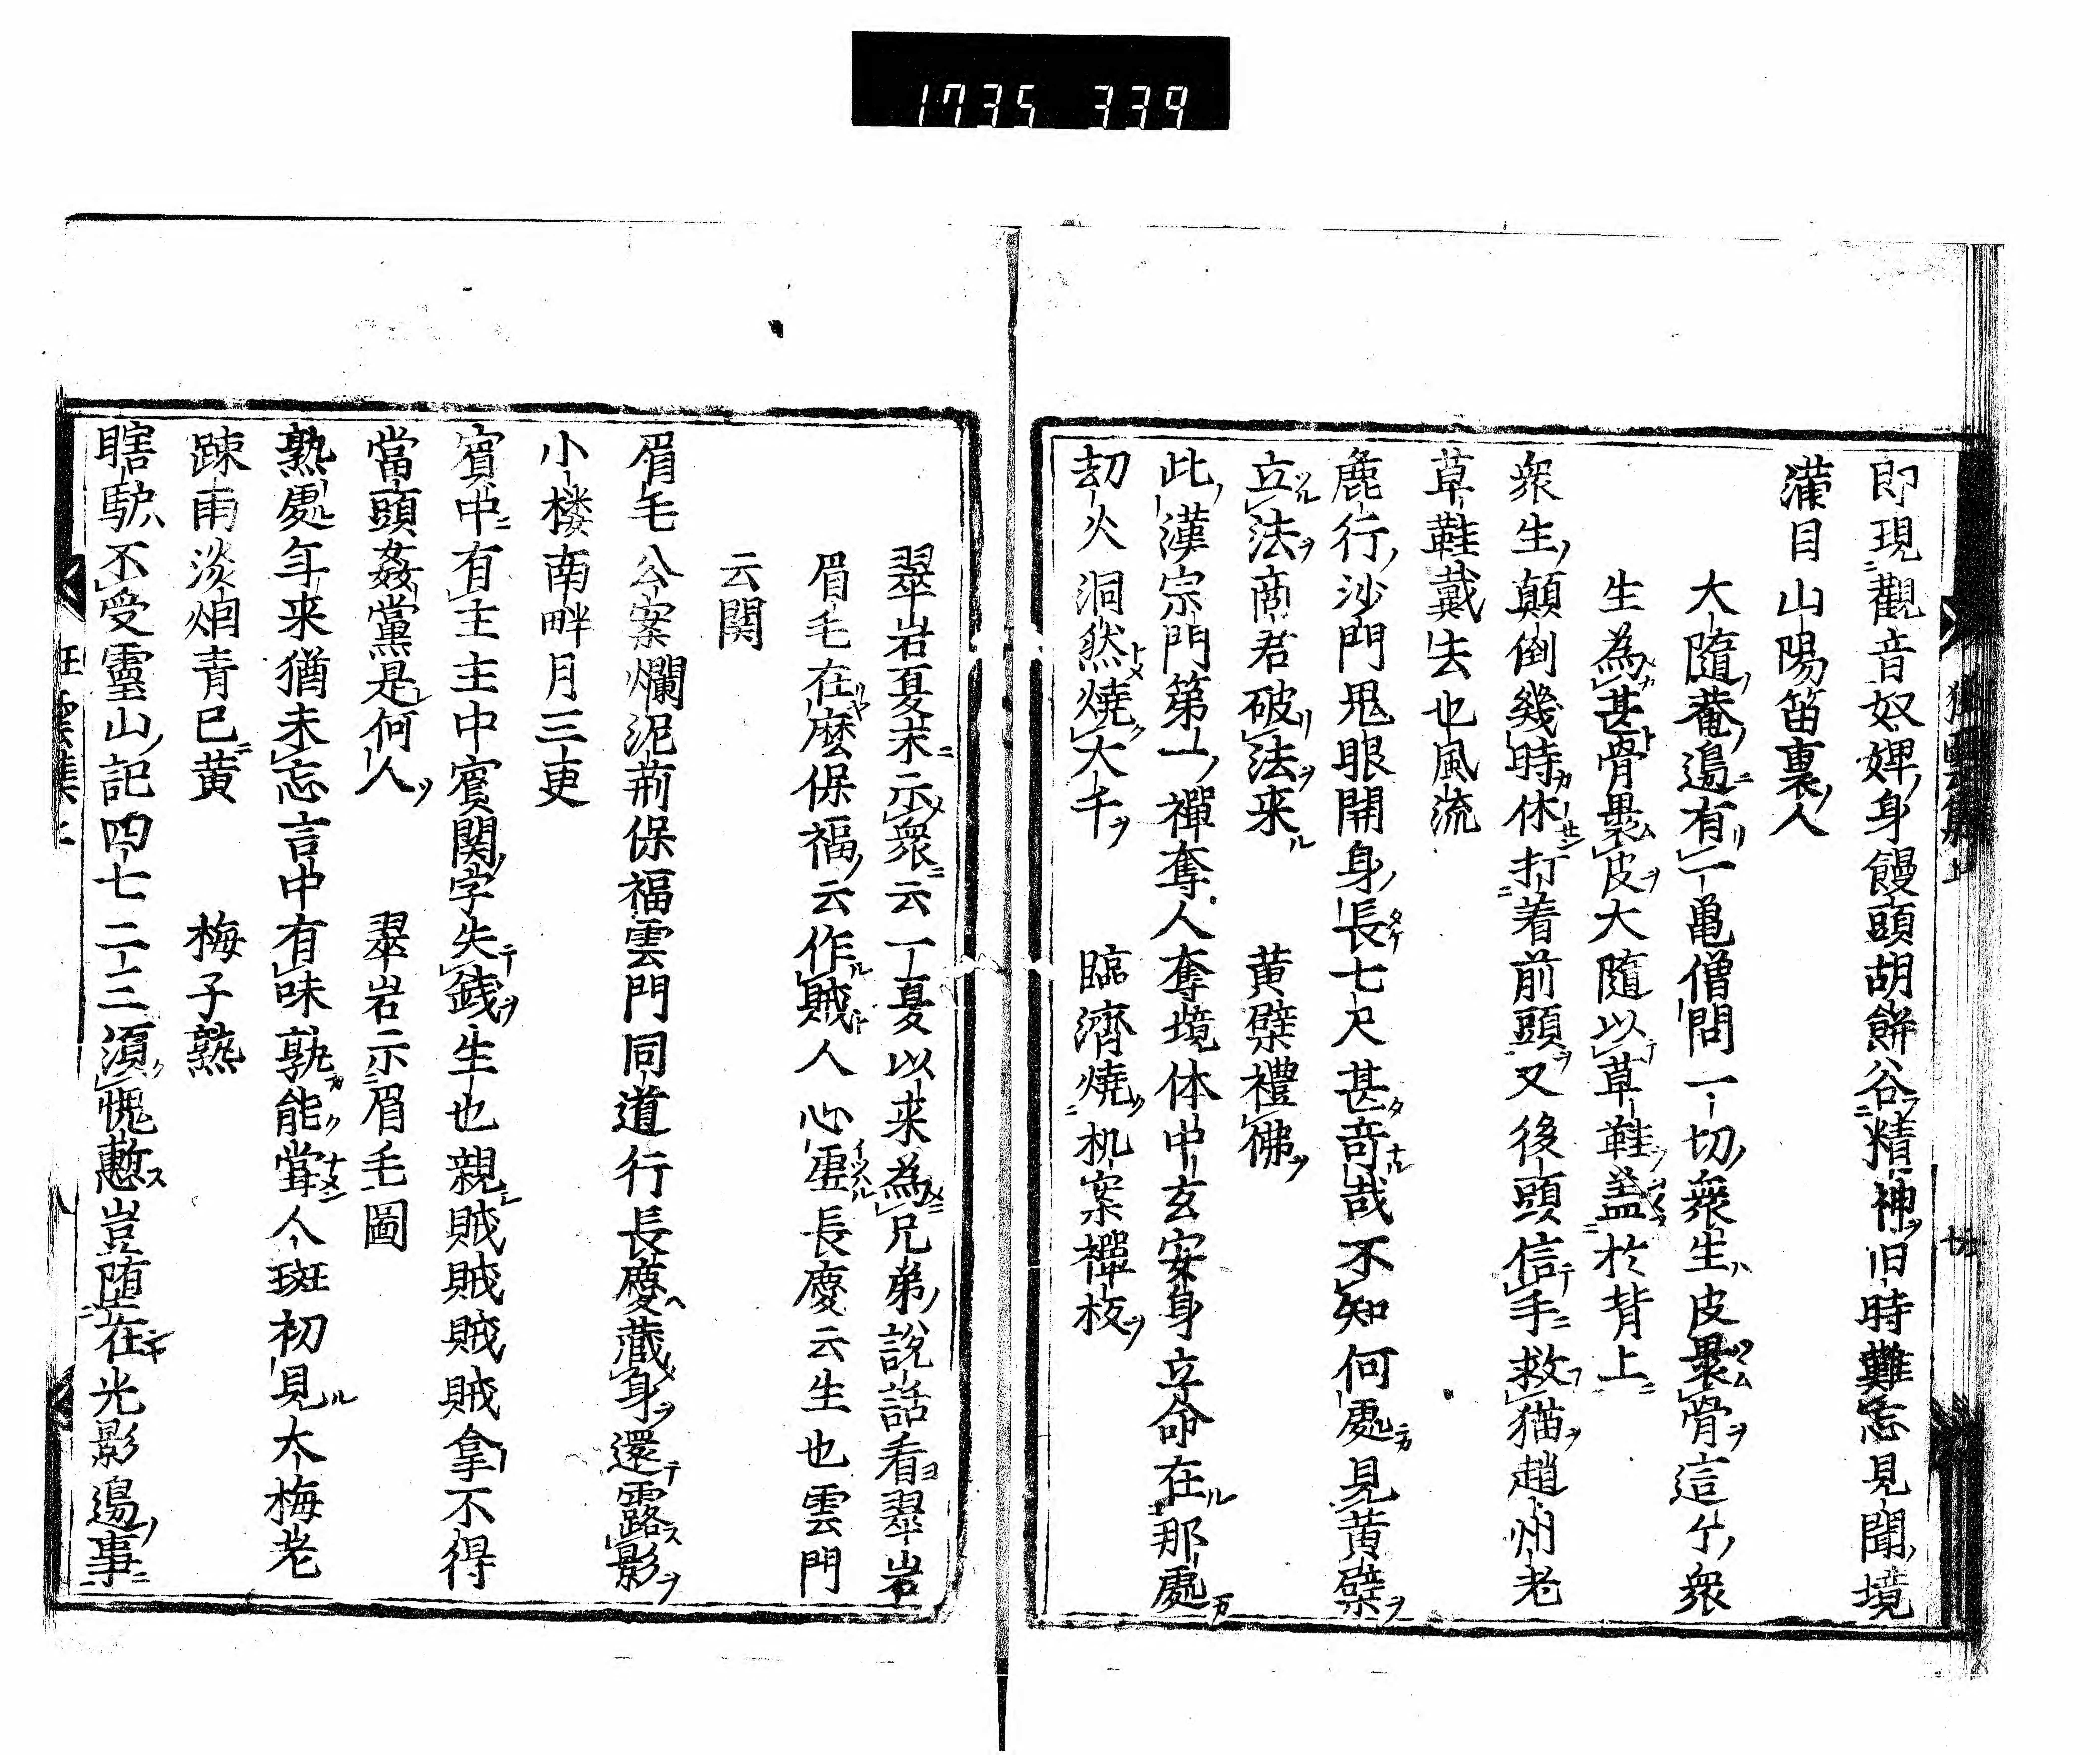 1735 339
狂雲集上
即現觀音奴婢身饅頭胡餅谷精神旧時難忘見聞境
滿目山陽笛裏人
大隨菴邉有一亀僧問一切衆生皮裹骨這个衆
生為甚骨裹皮大隨以草鞋盖於背上
衆生顛倒幾時休打着前頭又後頭信手救猫趙州老
草鞋戴去也風流
麁行沙門鬼眼開身長七尺甚竒哉不知何處見黄檗
立法商君破法来 黄檗禮佛
此漢宗門第一禪奪人奪境体中玄安身立命在那處
劫火洞然燒大千 臨濟燒机案禪板
翠岩夏末示衆云一夏以来為兄弟説話看翠岩
眉毛在麼保福云作賊人心虚長慶云生也雲門
云関
眉毛公案爛泥荊保福雲門同道行長慶藏身還露影
小楼南畔月三更
賓中有主主中賓関字失銭生也親賊賊賊賊拿不得
當頭姦黨是何人 翠岩示眉毛圖
熟處年来猶未忘言中有味孰能甞人斑初見大梅老
踈雨淡烟青已黄 梅子熟
瞎驢不受靈山記四七二三湏愧慙豈堕在光影邉事
狂雲集上 八